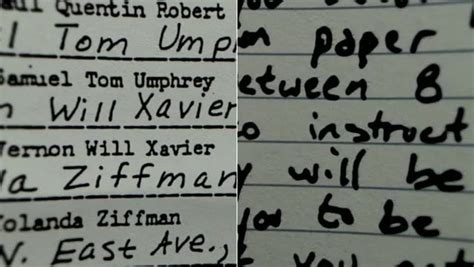 aul Quentin Robert
l Tom Ump
Samuel Tom Umphrey
n Will Xavier
Vernon Will Xavier
a Ziffman
olanda Ziffman
W. East Ave.,
paper
etween 8
o instruct
y will be
you to be